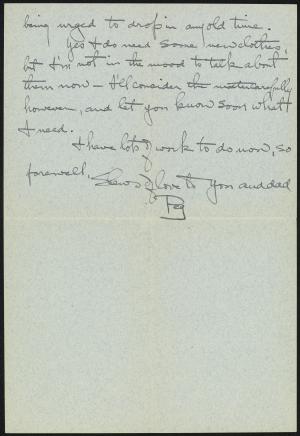 being urged to drop in any old time.
Yes I do need some new clothes,
but I'm not in the mood to talk about
them now – I'll consider the matter carefully
however, and let you know soon what
I need.
I have lots of work to do now, so
farewell,
Slews of love to you and dad
Peg